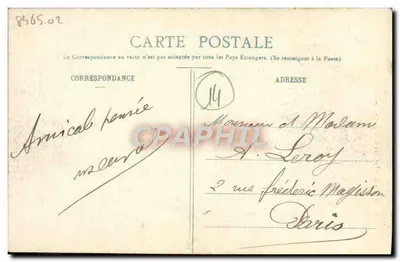 8565.02
CARTE POSTALE
La Correspondance au recto n'est pas acceptée par tous les Pays Étrangers. (Se renseigner à la Poste).
CORRESPONDANCE
ADRESSE
14
Amicale pensée
Monsieur et Madam
A. Leroy
2 rue fréderic Magisson
Paris
CARTE-POSTALE